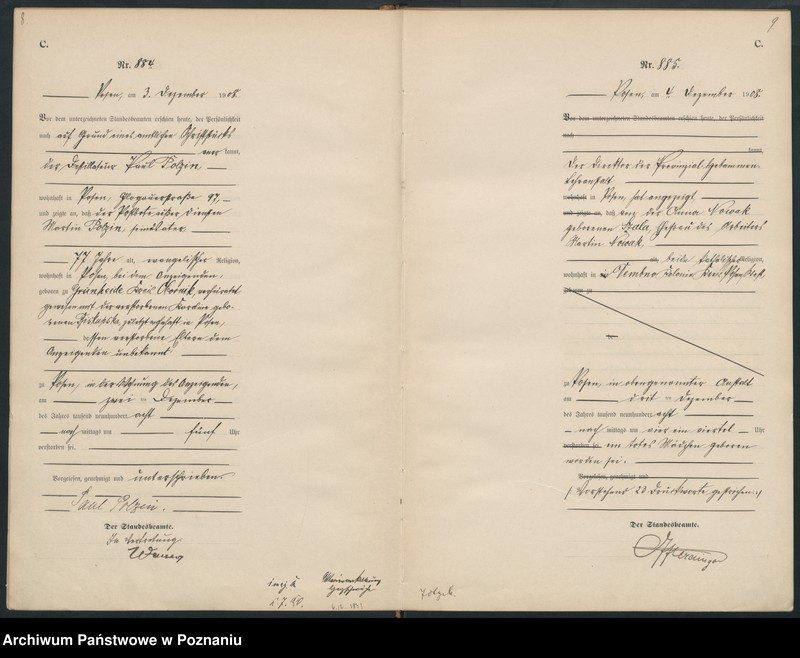 8
C.
Nr. 884
Posen, am 3. Dezember 1908.
Vor dem unterzeichneten Standesbeamten erschien heute, der Persönlichkeit
nach auf Grund eines amtlichen Schriftstücks
kannt,
der Destillateur Paul Polzin,
wohnhaft in Posen, Glogauerstraße 97,
und zeigte an, daß der Postbote außer Diensten
Martin Polzin, sein Vater
77 Jahre alt, evangelischer Religion,
wohnhaft in Posen, bei dem Anzeigenden,
geboren zu Grünheide Kreis, verheiratet
gewesen mit der verstorbenen Karoline gebo-
renen, zuletzt wohnhaft in Posen,
dessen verstorbene Eltern dem
Anzeigenden unbekannt
zu Posen, in der Wohnung des Anzeigenden,
am zwei ten Dezember
des Jahres tausend neunhundert acht
nach mittags um fünf Uhr
verstorben sei.
Vorgelesen, genehmigt und unterschrieben
Paul Polzin.
Der Standesbeamte.
In Vertretung
9
C.
Nr. 885.
Posen, am 4. Dezember 1908.
Vor dem unterzeichneten Standesbeamten erschien heute, der Persönlichkeit
nach
kannt,
Der Direktor der Provinzial-Hebammen-
Lehranstalt
wohnhaft in Posen, hat angezeigt,
und zeigte an, daß von der Anna Nowak
geborenen Szala, Ehefrau des Arbeiters
Martin Nowak,
alt, beide katholischer Religion,
wohnhaft in Kolonie
geboren zu
zu Posen, in obengenannter Anstalt
am drit ten Dezember
des Jahres tausend neunhundert acht
nach mittags um vier ein viertel Uhr
verstorben sei ein totes Mädchen geboren
worden sei.
Vorgelesen, genehmigt und
(Vorstehend 23 Druckworte gestrichen.)
Der Standesbeamte.
Archiwum Państwowe w Poznaniu